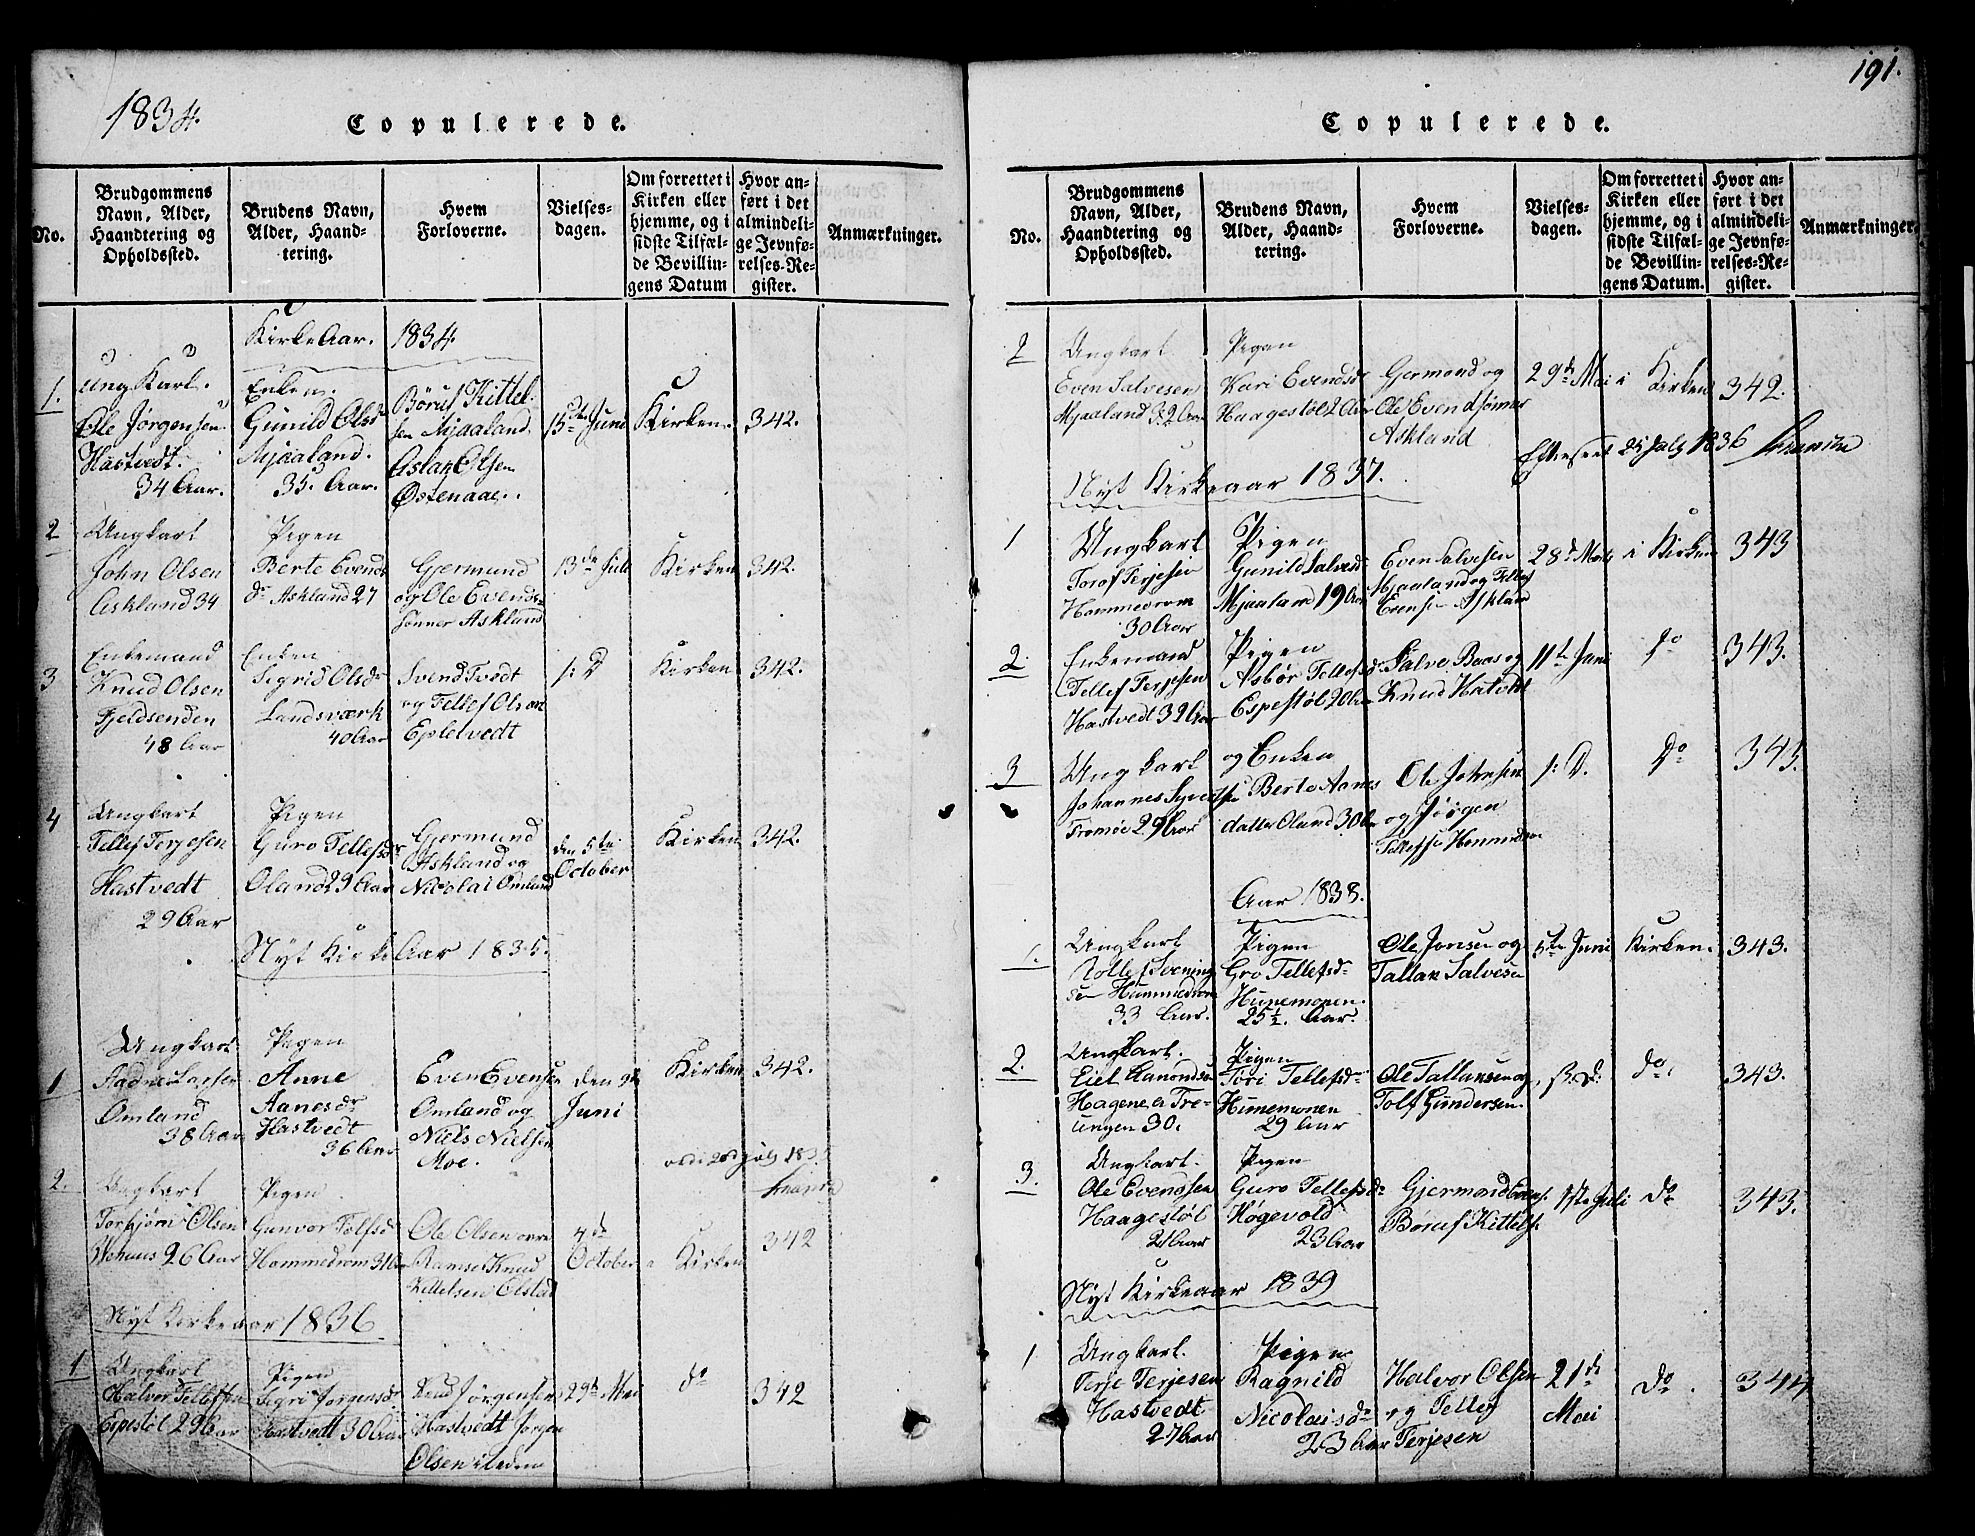 1834.
Copulerede.
No.
Brudgommens Navn, Alder, Haandtering og Opholdssted.
Brudens Navn, Alder, Haandtering.
Hvem Forloverne.
Vielsesdagen.
Om forrettet i Kirken eller hjemme, og i sidste Tilfælde Bevillingens Datum
Hvor anført i det almindelige Jevnførelses-Register.
Anmærkninger.
Kirke Aar. 1834.
1.
Ung Karl.
Ole Jørgensen
Hastvedt.
34 Aar.
Enken.
Gunild Olsdr
Mjaaland.
35. Aar.
Børuf Kittel-
sen Mjaaland
Aslak Olsen
Østenaae.
15de Juni
Kirken.
342.
2
Ungkarl
John Olsen
Askland 34
Pigen
Berte Evends
dr Askland 27
Gjermund
og Ole Evends-
sønner Askland
13de Juli
Kirken
342.
3
Enkemand
Knud Olsen
Fjeldsenden
48 Aar
Enken
Sigrid Olsdr
Landsværk
40 Aar
Svend Tvedt
og Tellef Olsen
Epletvedt
s: D
Kirken
342.
4
Ungkarl
Tellef Terjesen
Hastvedt
29 Aar
Pigen
Guro Tellefsdr
Oland 29 Aar
Gjermund
Askland og
Nicolai Omland
den 5te
October
Kirken
342.
Nyt Kirke Aar 1835.
1
Ungkarl
Aadne Larsen
Omland
38 Aar
Pigen
Anne
Aanesdr
Hastvedt
36 Aar
Even Evensen
Omland og
Niels Nielsen
Moe.
den 9de
Juni
Kirken
342.
2.
Ungkarl
Torbjørn Olsen
26 Aar
Pigen
Gunvor Tolfsdr
Hommedrom 31 Aar
Ole Olsen øvre
Ramse Knud
Kittelsen Olstad
4de
October
Kirken
342
Nyt Kirkeaar 1836
1
Ungkarl
Halvor Tellefsen
Espestøl 29 Aar
Pigen
Sigri Jørgensdr
Hastvedt 30 Aar
Knud Jørgensen
Hastvedt Jørgen
Olsen
29de Mai
do
342
191.
Copulerede.
No.
Brudgommens Navn, Alder, Haandtering og Opholdssted.
Brudens Navn, Alder, Haandtering.
Hvem Forloverne.
Vielsesdagen.
Om forrettet i Kirken eller hjemme, og i sidste Tilfælde Bevillingens Datum.
Hvor anført i det almindelige Jevnførelses-Register.
Anmærkninger.
2
Ungkarl
Even Salvesen
Mjaaland 32 Aar
Pigen
Kari Evendsdr
Haagestøl 20 Aar
Gjermond og
Ole Evendsønner
Askland
29de Mai
i Kirken
342.
Efterseet 25 July 1836
Nyt Kirkeaar 1837.
1
Ungkarl
Torof Terjesen
Hommedrom
30 Aar
Pigen
Gunild Salvesdr
Mjaaland 19 Aar
Even Salvesen
Mjaaland og Tellef
Evensen Askland
28de
i Kirken
343
2.
Enkemand
Tellef Terjesen
Hastvedt 32 Aar
Pigen
Asbør Tellefsdr
Espestøl 20 Aar
Salve Baas og
Knud Hatvedt
11te Juni
do
343.
3
Ungkarl
Johannes
Tromøe 29 Aar
og Enken
Berte Aanes
datter Oland 30 Aar
Ole Johnsen
og Jørgen
Tellefsen Hommedrom
s: D.
Do
343.
Aar 1838.
1.
Ungkarl
Rollef Svening-
sen Hummedrom
33 Aar.
Pigen
Gro Tellefsdr
Hunemonen.
25½. Aar.
Ole Jonsen og
Tallak Salvesen
5te Juni
Kirken.
343.
2.
Ungkarl.
Eiel Aanondsen
Hagene a Tre-
ungen 30.
Pigen
Tori Tellefsdr
Hunemonen
29 Aar
Ole Tallaksen og
Tolf Gundersen.
s. D.
do
343.
3.
Ungkarl.
Ole Evendsen
Haagestøl
21 Aar
Pigen
Guro Tellefsdr
Høgevold
23 Aar
Gjermond Evens.
Børuf Kittels.
1ste Juli
do
343.
Nyt Kirkeaar 1839
1
Ungkarl.
Terje Terjesen
Hastvedt
27 Aar
Pigen
Ragnild
Nicolaisdr
23 Aar
Halvor Olsen
og Tellef
Terjesen
21de
Mai
do
344